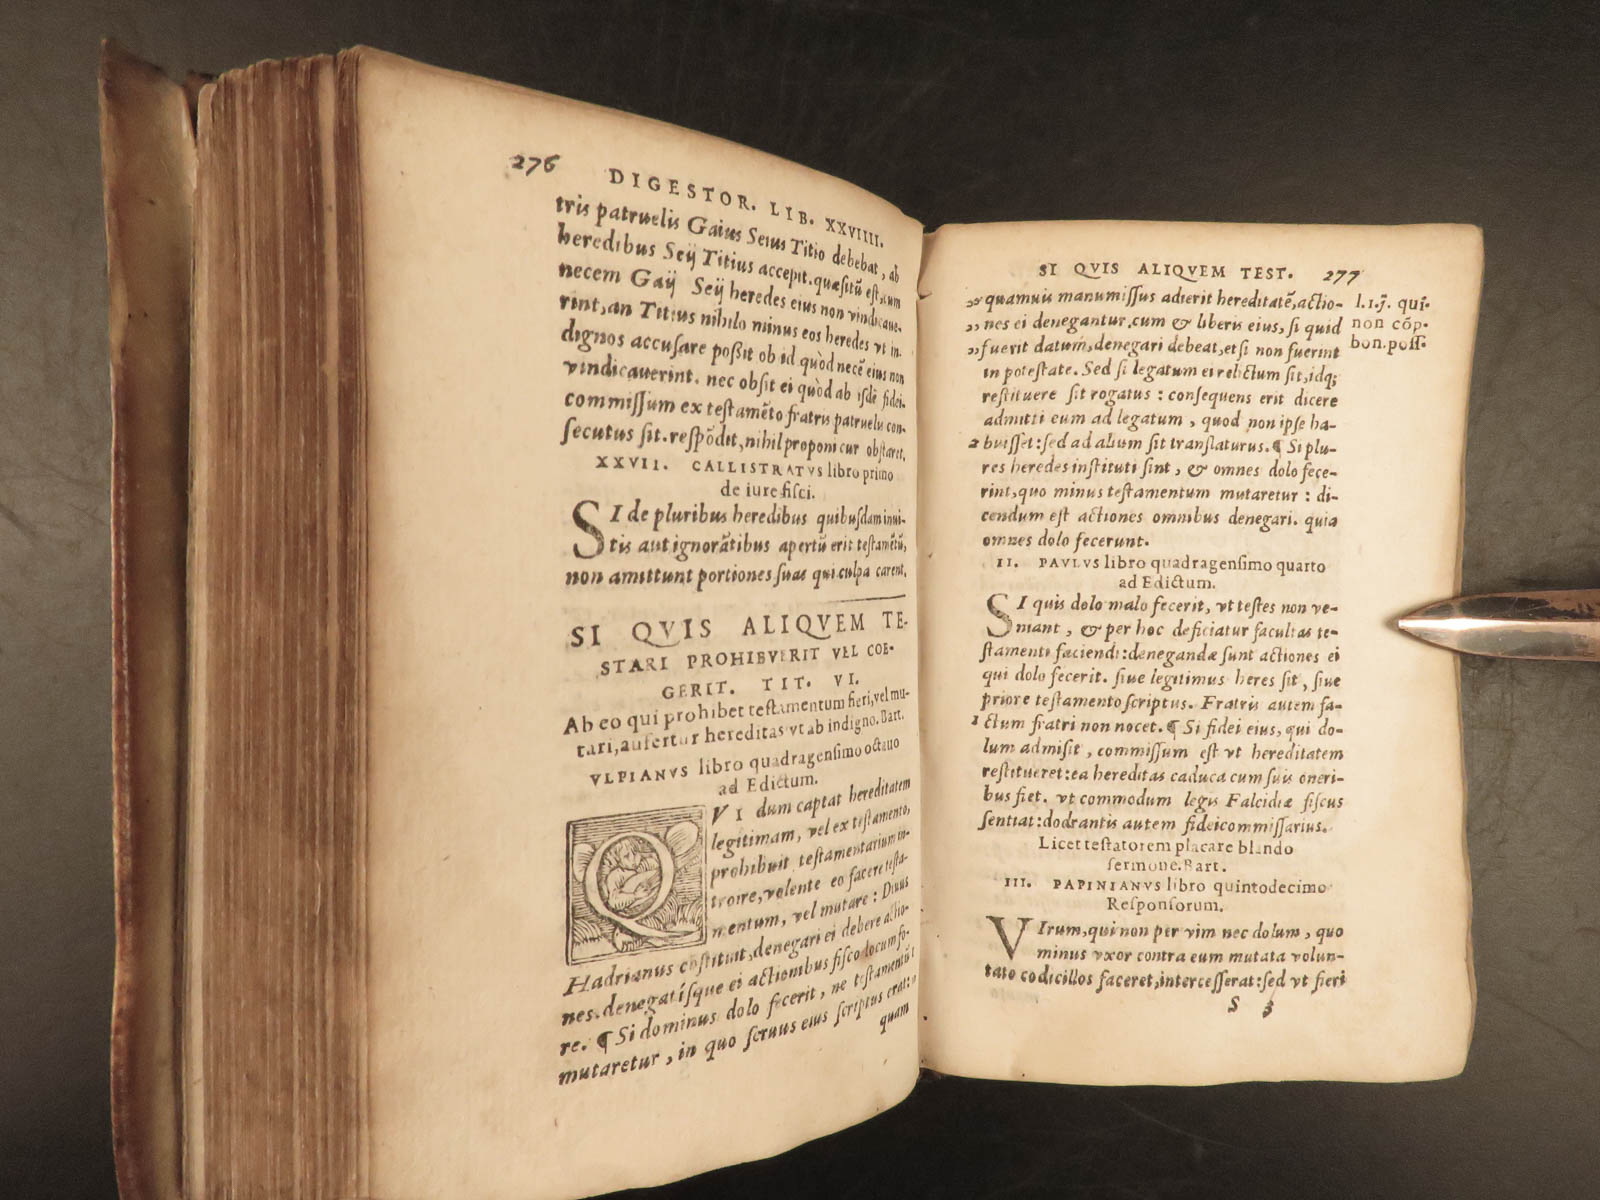 276 DIGESTOR. LIB. XXVIIII.
tris patruelis Gaius Seius Titio debebat, ab
heredibus Seij Titius accepit. quæsitū est, cum
necem Gaij Seij heredes eius non vindicaue-
rint, an Titius nihilo minus eos heredes vt in-
dignos accusare poßit ob id quòd necē eius non
vindicauerint. nec obsit ei quòd ab ijsdē fidei-
commissum ex testamēto fratris patruelis con-
secutus sit. respōdit, nihil proponi cur obstaret.
XXVII. CALLISTRATVS libro primo
de iure fisci.
SI de pluribus heredibus quibusdam inui-
tis aut ignorātibus apertū erit testamētū,
non amittunt portiones suas qui culpa carent.
SI QVIS ALIQVEM TE-
STARI PROHIBVERIT VEL COE-
GERIT. TIT. VI.
Ab eo qui prohibet testamentum fieri, vel mu-
tari, aufertur hereditas vt ab indigno. Bart.
VLPIANVS libro quadragensimo octauo
ad Edictum.
QVI dum captat hereditatem
legitimam, vel ex testamento,
prohibuit testamentarium in-
troire, volente eo facere testa-
mentum, vel mutare: Diuus
Hadrianus cōstituit, denegari ei debere actio-
nes. denegatísque ei actionibus fisco locum fo-
re. ¶ Si dominus dolo fecerit, ne testamentū
mutaretur, in quo seruus eius scriptus erat:
quam
SI QVIS ALIQVEM TEST. 277
„quamuis manumissus adierit hereditatē, actio-
„nes ei denegantur. cum & liberis eius, si quid
„fuerit datum, denegari debeat, et si non fuerint
in potestate. Sed si legatum ei relictum sit, idq;
restituere sit rogatus : consequens erit dicere
admitti eum ad legatum, quod non ipse ha-
2 buisset: sed ad alium sit translaturus. ¶ Si plu-
res heredes instituti sint, & omnes dolo fece-
rint, quo minus testamentum mutaretur : di-
cendum est actiones omnibus denegari. quia
omnes dolo fecerunt.
l. 1. ij. qui.
non cōp.
bon. poss.
II. PAVLVS libro quadragensimo quarto
ad Edictum.
SI quis dolo malo fecerit, vt testes non ve-
niant, & per hoc deficiatur facultas te-
stamenti faciendi: denegandæ sunt actiones ei
qui dolo fecerit. siue legitimus heres sit, siue
priore testamento scriptus. Fratris autem fa-
1 ctum fratri non nocet. ¶ Si fidei eius, qui do-
lum admisit, commissum est vt hereditatem
restitueret: ea hereditas caduca cum suis oneri-
bus fiet. vt commodum legis Falcidiæ fiscus
sentiat: dodrantis autem fideicommissarius.
Licet testatorem placare blando
sermone. Bart.
III. PAPINIANVS libro quintodecimo
Responsorum.
VIrum, qui non per vim nec dolum, quo
minus vxor contra eum mutata volun-
tate codicillos faceret, intercesserat: sed vt fieri
S 3